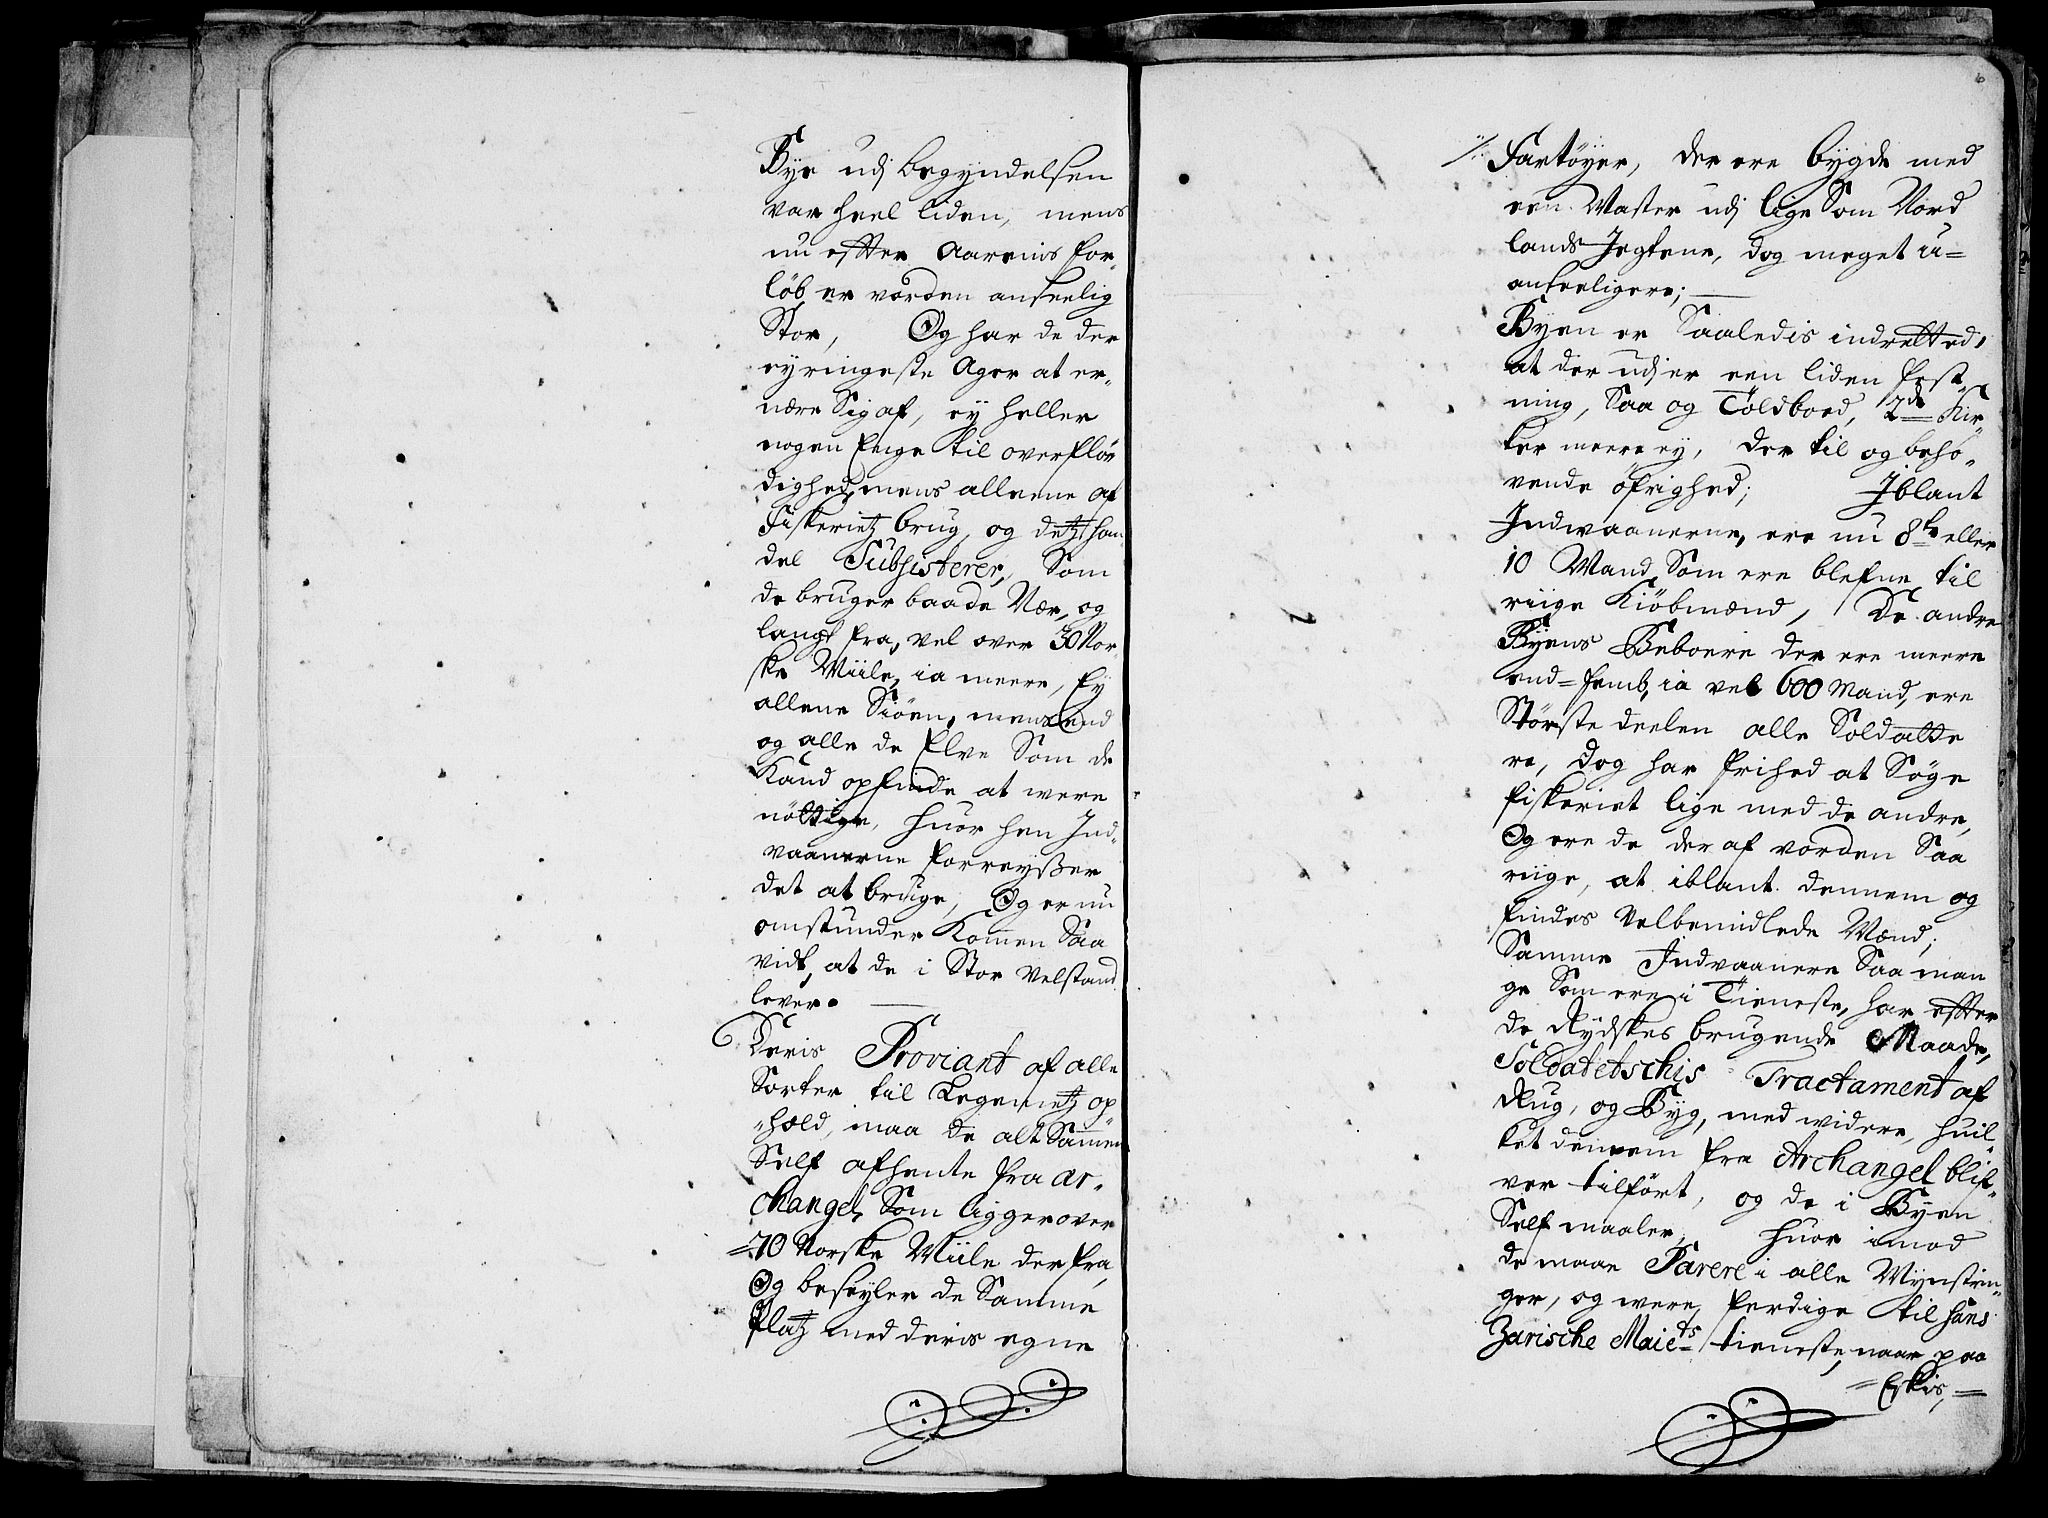 Bye udj begyndelsen
var heel liden, mens
nu efter Aarenis for„
löb, er vorden anseelig
Stor, Og har de der
eyringeste Ager at er„
nære Sig af, ey heller
nogen Enge til overflö„
dighed, mens alleene af
Fiskerietz brug, og detz han„
del Subsisterer, Som
de bruger baade Nær, og
langt fra, vel over 30 Nor„
ske Miile, ia meere, Ey
allene Siöen, mens end
og alle de Elve Som de
Kand opfinde at were
nöttige, huor hen Ind„
vaanerne forreyßer
det at bruge, Og er nu
omstunder Komen Saa
vidt, at de i Stor velstand
lever.
Deris Proviant af alle
Sorter til Legemetz op„
„hold, maa de alt Sammen
Self afhente fra Ar„
changel, Som ligger over
70 Norske Miile der fra,
Og beseyler de Samme
Platz med deris egne
6
Fartöyer, der ere bygde med
een Master udj lige Som Nord
lands Jegtene, dog meget u=
anseeligere;
Byen er Saaledis indretted,
at der udj er een liden Fest„
ning, Saa og Toldboed, 2de Kir„
ker meere ey, der til og beho„
vende öfrighed; Iblant
Indvaanerne, ere nu 8te eller
10 Mand, Som ere blefne til
riige Kiöbmænd, De andre
Byens Beboere der ere meere
end=femb, ia vel 600 Mand, ere
Störste deelen alle Soldatte
re, dog har frihed at Söge
fiskeriet lige med de andre,
Og ere de der af vorden Saa
riige, at iblant dennem og
findes velbemidlede Mænd;
Samme Indvaanere Saa man
ge Som ere i Tieneste, har efter
de Rydskes brugende Maade,
Soldatetschis Tractament af
Rug, og Byg, med widere, huil„
ket dennem fra Archangel blif„
ver tilfört, og de i Byen
Self maaler, huor imod
de maae Parere i alle Mynstrin„
ger, og were ferdige til hans
Zarische Maiets tieneste, naar paa
=Eskis,=